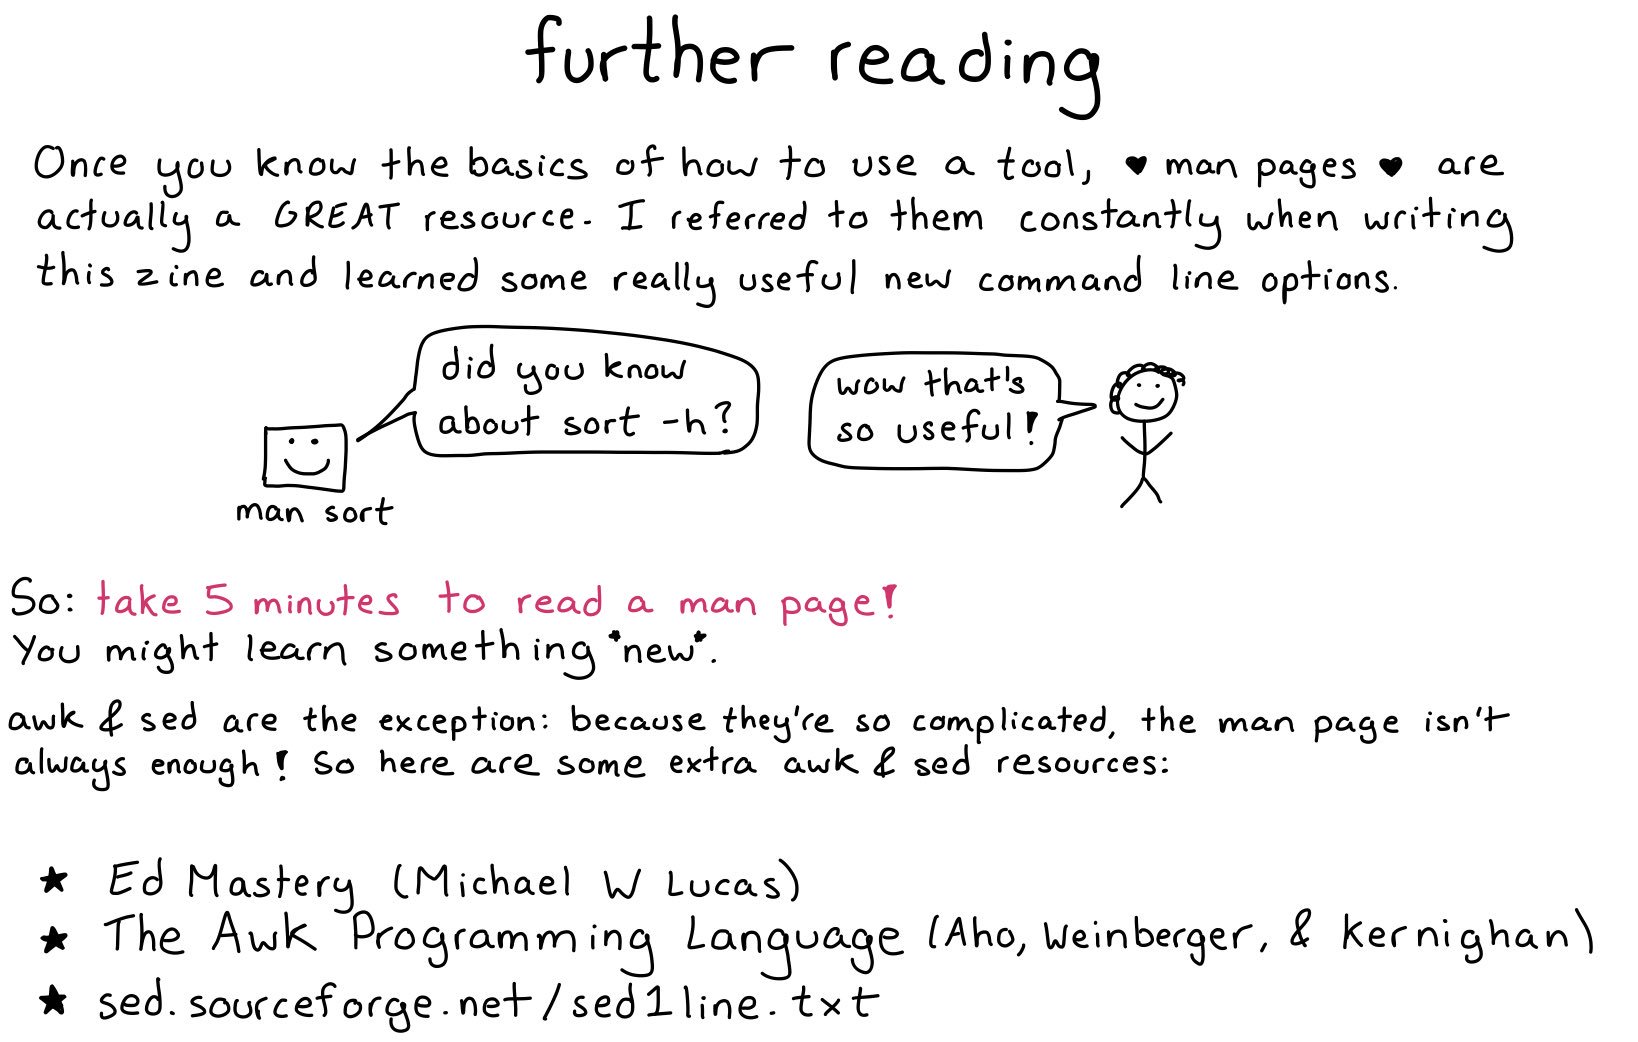 further reading
Once you know the basics of how to use a tool, ♥ man pages ♥ are
actually a GREAT resource. I referred to them constantly when writing
this zine and learned some really useful new command line options.
did you know
about sort -h?
wow that's
so useful!
man sort
So: take 5 minutes to read a man page!
You might learn something *new*.
awk & sed are the exception: because they're so complicated, the man page isn't
always enough! So here are some extra awk & sed resources:
★ Ed Mastery (Michael W Lucas)
★ The Awk Programming Language (Aho, Weinberger, & Kernighan)
★ sed.sourceforge.net/sed1line.txt